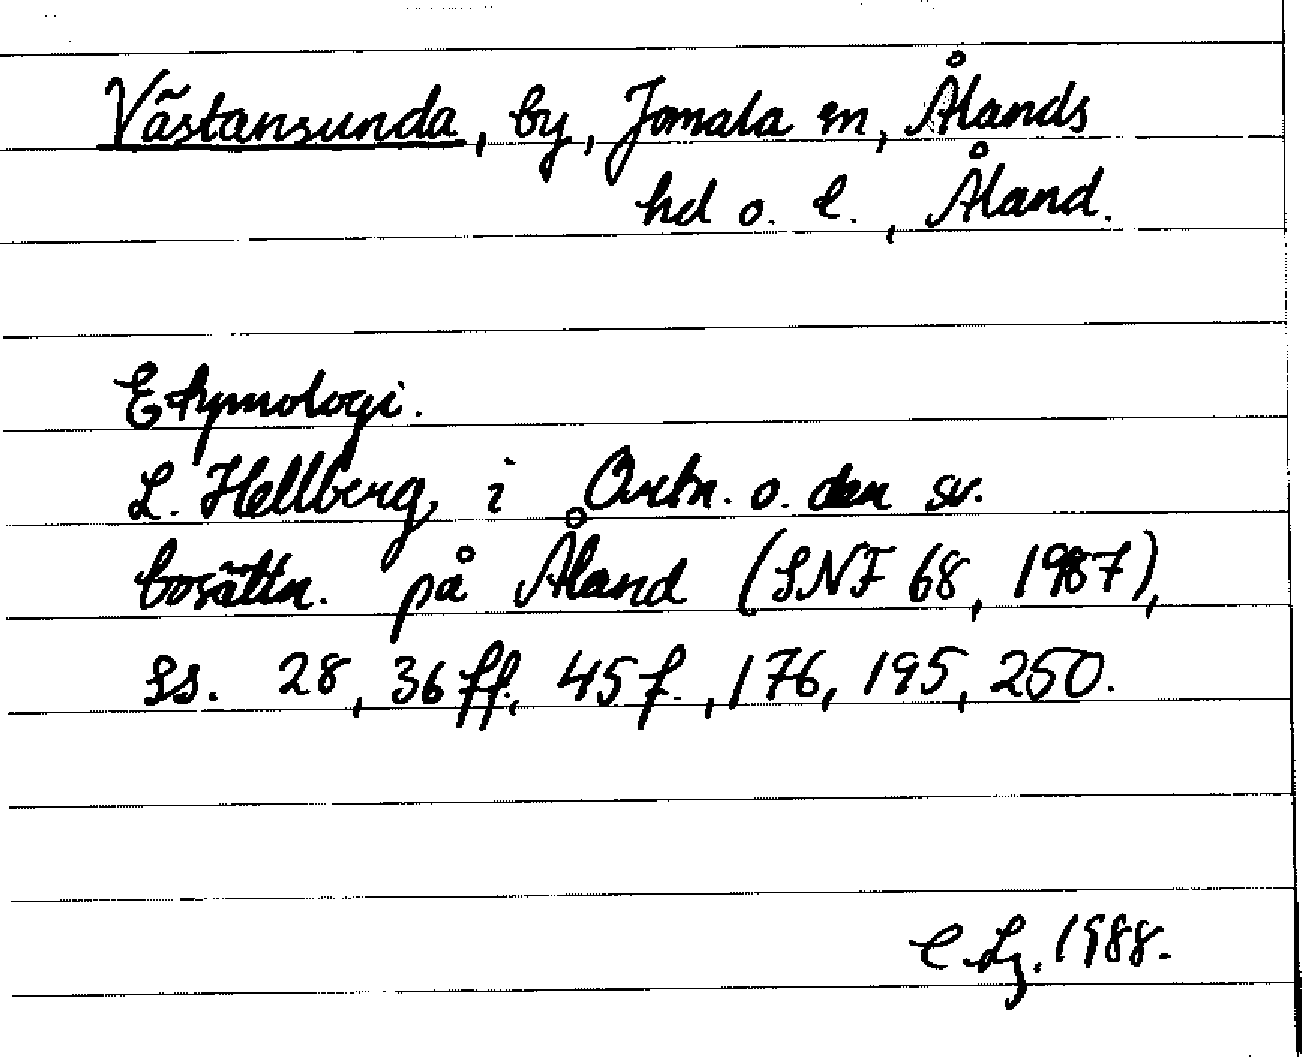 Västansunda, by, Jomala sn, Ålands
hd o. l., Åland.
Etymologi.
L. Hellberg, i Ortn. o. den sv.
bosättn. på Åland (SNF 68, 1987),
ss. 28, 36 ff., 45 f., 176, 195, 250.
C. Lg. 1988.